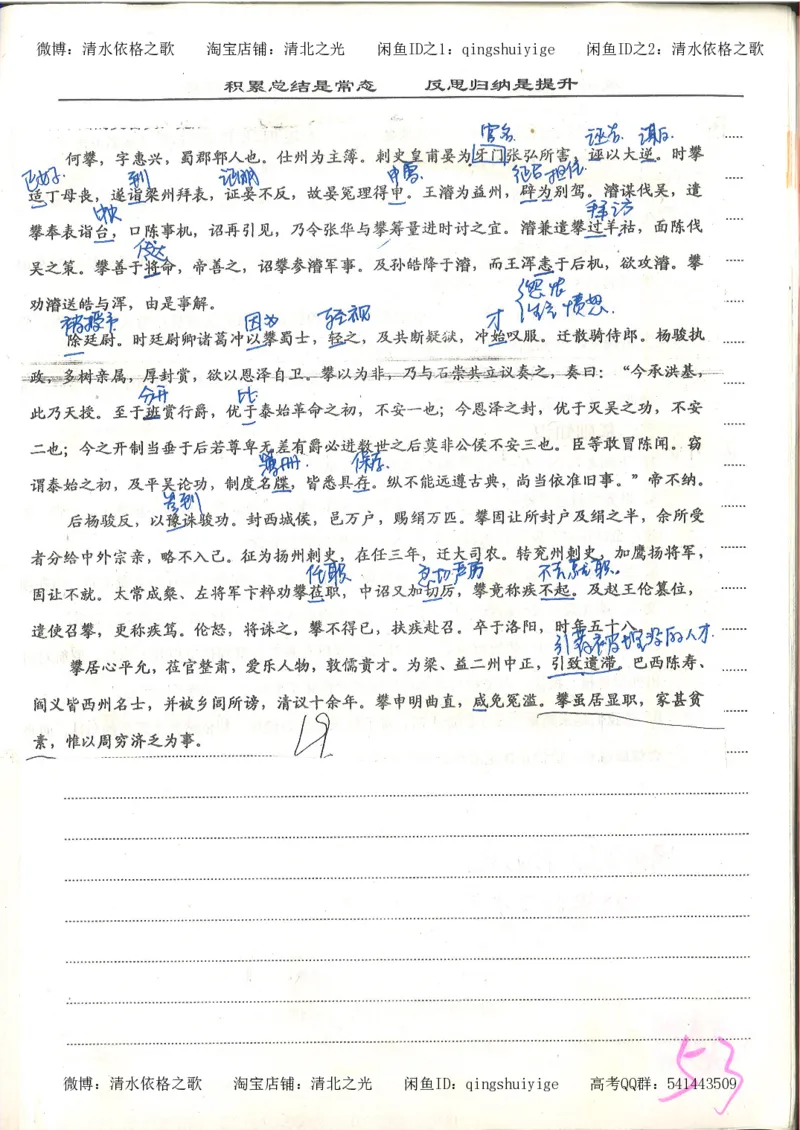 微博：清水依格之歌 淘宝店铺：清北之光 闲鱼ID之1：qingshuiyige 闲鱼ID之2：清水依格之歌
积累总结是常态 反思归纳是提升
官名 诬告 谋反
何攀，字惠兴，蜀郡郫人也。仕州为主簿。刺史皇甫晏为牙门张弘所害，诬以大逆。时攀
已好 到 证明 申冤 征召 担任
适丁母丧，遂诣梁州拜表，证晏不反，故晏冤理得申。王濬为益州，辟为别驾。濬谋伐吴，遣
中央 拜访
攀奉表诣台，口陈事机，诏再引见，乃令张华与攀筹量进时讨之宜。濬兼遣攀过羊祜，面陈伐
传达
吴之策。攀善于将命，帝善之，诏攀参濬军事。及孙皓降于濬，而王浑恚于后机，欲攻濬。攀
怨恨
劝濬送皓与浑，由是事解。
愤怒.
被授予 因为 轻视 才
除廷尉。时廷尉卿诸葛冲以攀蜀士，轻之，及共断疑狱，冲始叹服。迁散骑侍郎。杨骏执
政，多树亲属，厚封赏，欲以恩泽自卫。攀以为非，乃与石崇共立议奏之，奏曰：“今承洪基，
分开 比
此乃天授。至于班赏行爵，优于泰始革命之初，不安一也；今恩泽之封，优于灭吴之功，不安
二也；今之开制当垂于后若尊卑无差有爵必进数世之后莫非公侯不安三也。臣等敢冒陈闻。窃
簿册. 保存.
谓泰始之初，及平吴论功，制度名牒，皆悉具存。纵不能远遵古典，尚当依准旧事。”帝不纳。
后杨骏反，以豫诛骏功。封西城侯，邑万户，赐绢万匹。攀固让所封户及绢之半，余所受
者分给中外宗亲，略不入己。征为扬州刺史，在任三年，迁大司农。转兖州刺史，加鹰扬将军，
任职 急切严厉 不去就职。
固让不就。太常成粲、左将军卞粹劝攀莅职，中诏又加切厉，攀竟称疾不起。及赵王伦篡位，
遣使召攀，更称疾笃。伦怒，将诛之，攀不得已，扶疾赴召。卒于洛阳，时年五十八。
引荐被埋没的人才.
攀居心平允，莅官整肃，爱乐人物，敦儒贵才。为梁、益二州中正，引致遗滞。巴西陈寿、
阎乂皆西州名士，并被乡闾所谤，清议十余年。攀申明曲直，咸免冤滥。攀虽居显职，家甚贫
素，惟以周穷济乏为事。
19
微博：清水依格之歌 淘宝店铺：清北之光 闲鱼ID：qingshuiyige 高考QQ群：541443509
53